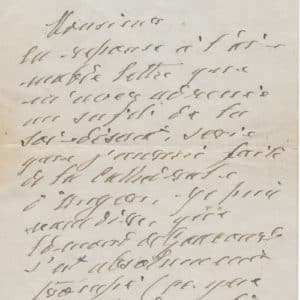 Monsieur
en réponse à l'ai-
mable lettre que
m'avez adressée
au sujet de la
soi-disant série
que j'aurais faite
de la Cathédrale
je puis
vous dire que
le
s'est absolument
trompé